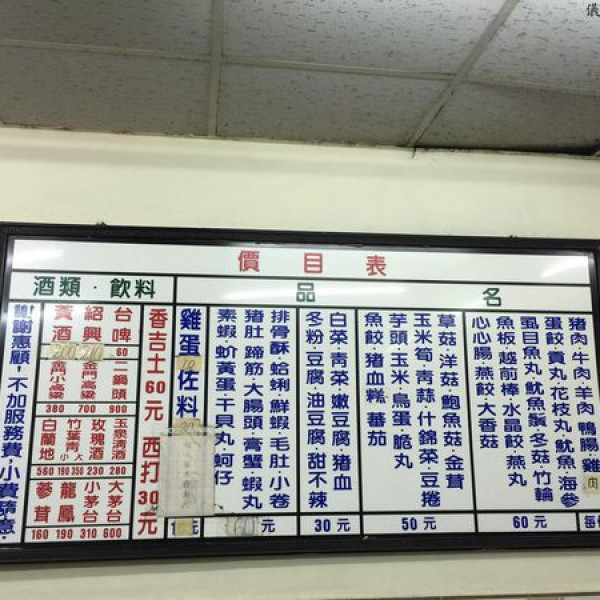 儀
價目表
品名
酒類·飲料
豬肉·牛肉·羊肉·鴨腸·雞肉
蛋餃·貢丸·花枝丸·魷魚·海參
虱目魚丸·魷魚鬚·冬菇·竹輪
魚板·越前棒·水晶餃·燕丸
心心腸·燕餃·大香菇
60元
草菇·洋菇·鮑魚菇·金茸
玉米筍·青蒜·什錦菜·豆捲
芋頭·玉米·鳥蛋·脆丸
魚餃·豬血糕·蕃茄
50元
白菜·青菜·嫩豆腐·豬血
冬粉·豆腐·油豆腐·甜不辣
30元
排骨酥·蛤蜊·鮮蝦·毛肚·小卷
豬肚·蹄筋·大腸頭·膏蟹·蝦丸
素蝦·蚧黃蛋·干貝丸·蚵仔
60元
雞蛋
佐料
香吉士60元 西打30元
台啤
60
紹興
黃酒
二鍋頭
900
金門高粱
700
小高粱
380
玉泉清酒
280
玫瑰酒
230
竹葉青
大350
小190
白蘭地
560
大茅台
600
小茅台
310
龍鳳
190
蔘茸
160
謝謝惠顧,不加服務費·小費隨意·